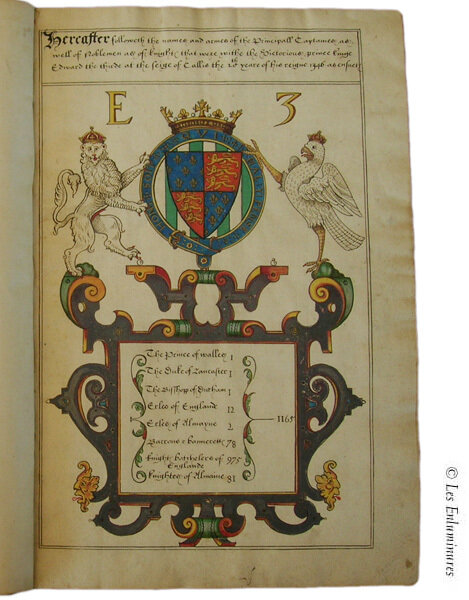 Hereafter followeth the names and armes of the Principall Captaines as
well of Noblemen as of knights that were withe the Victorious prince kinge
Edward the thirde at the seige of Callis the 20th yeare of his reigne 1346 as ensuet
E 3
HONY SOIT QVI MAL Y PENSE
The Prince of walles 1
The Duke of Lancaster 1
The Bisshop of Durham 1
Erles of Englande 12
Erles of Almayne 2
Barrons & bannerett 78
knight batchelers of 975
Englande
knightes of Almaine 81
1165
© Les Enluminures